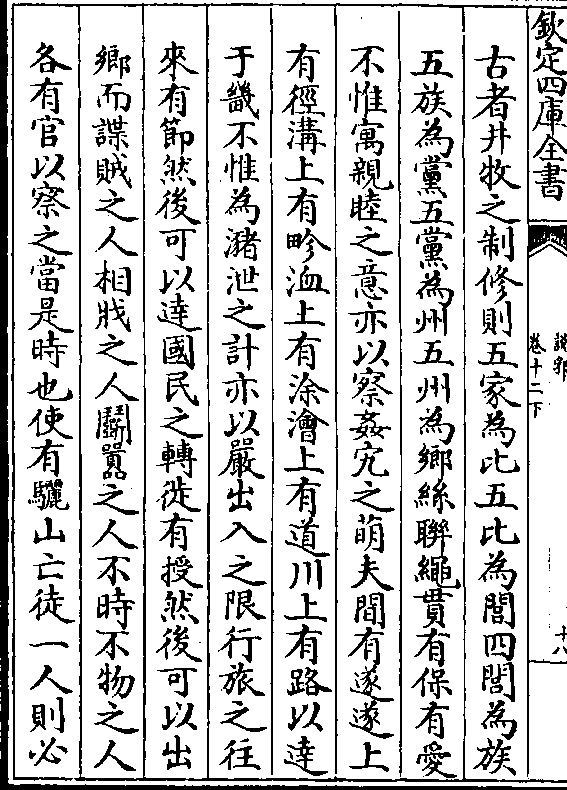 欽定四庫全書
說郛
卷十二下
十八
古者井牧之制修則五家為比五比為閭四閭為族
五族為黨五黨為州五州為鄉絲聯繩貫有保有愛
不惟寓親睦之意亦以察姦宄之萌夫間有遂遂上
有徑溝上有畛洫上有涂澮上有道川上有路以達
于畿不惟為瀦泄之計亦以嚴出入之限行旅之往
來有節然後可以達國民之轉徙有授然後可以出
鄉而諜賊之人相戕之人鬭囂之人不時不物之人
各有官以察之當是時也使有驪山亡徒一人則必